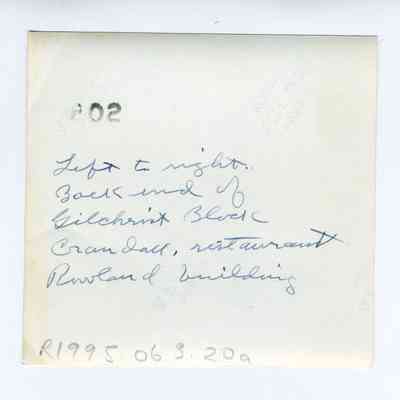 Left to right.
Back end of
Gilchrist Block
Crandall, restaurant
Rowland building
R1995.06 3.20a